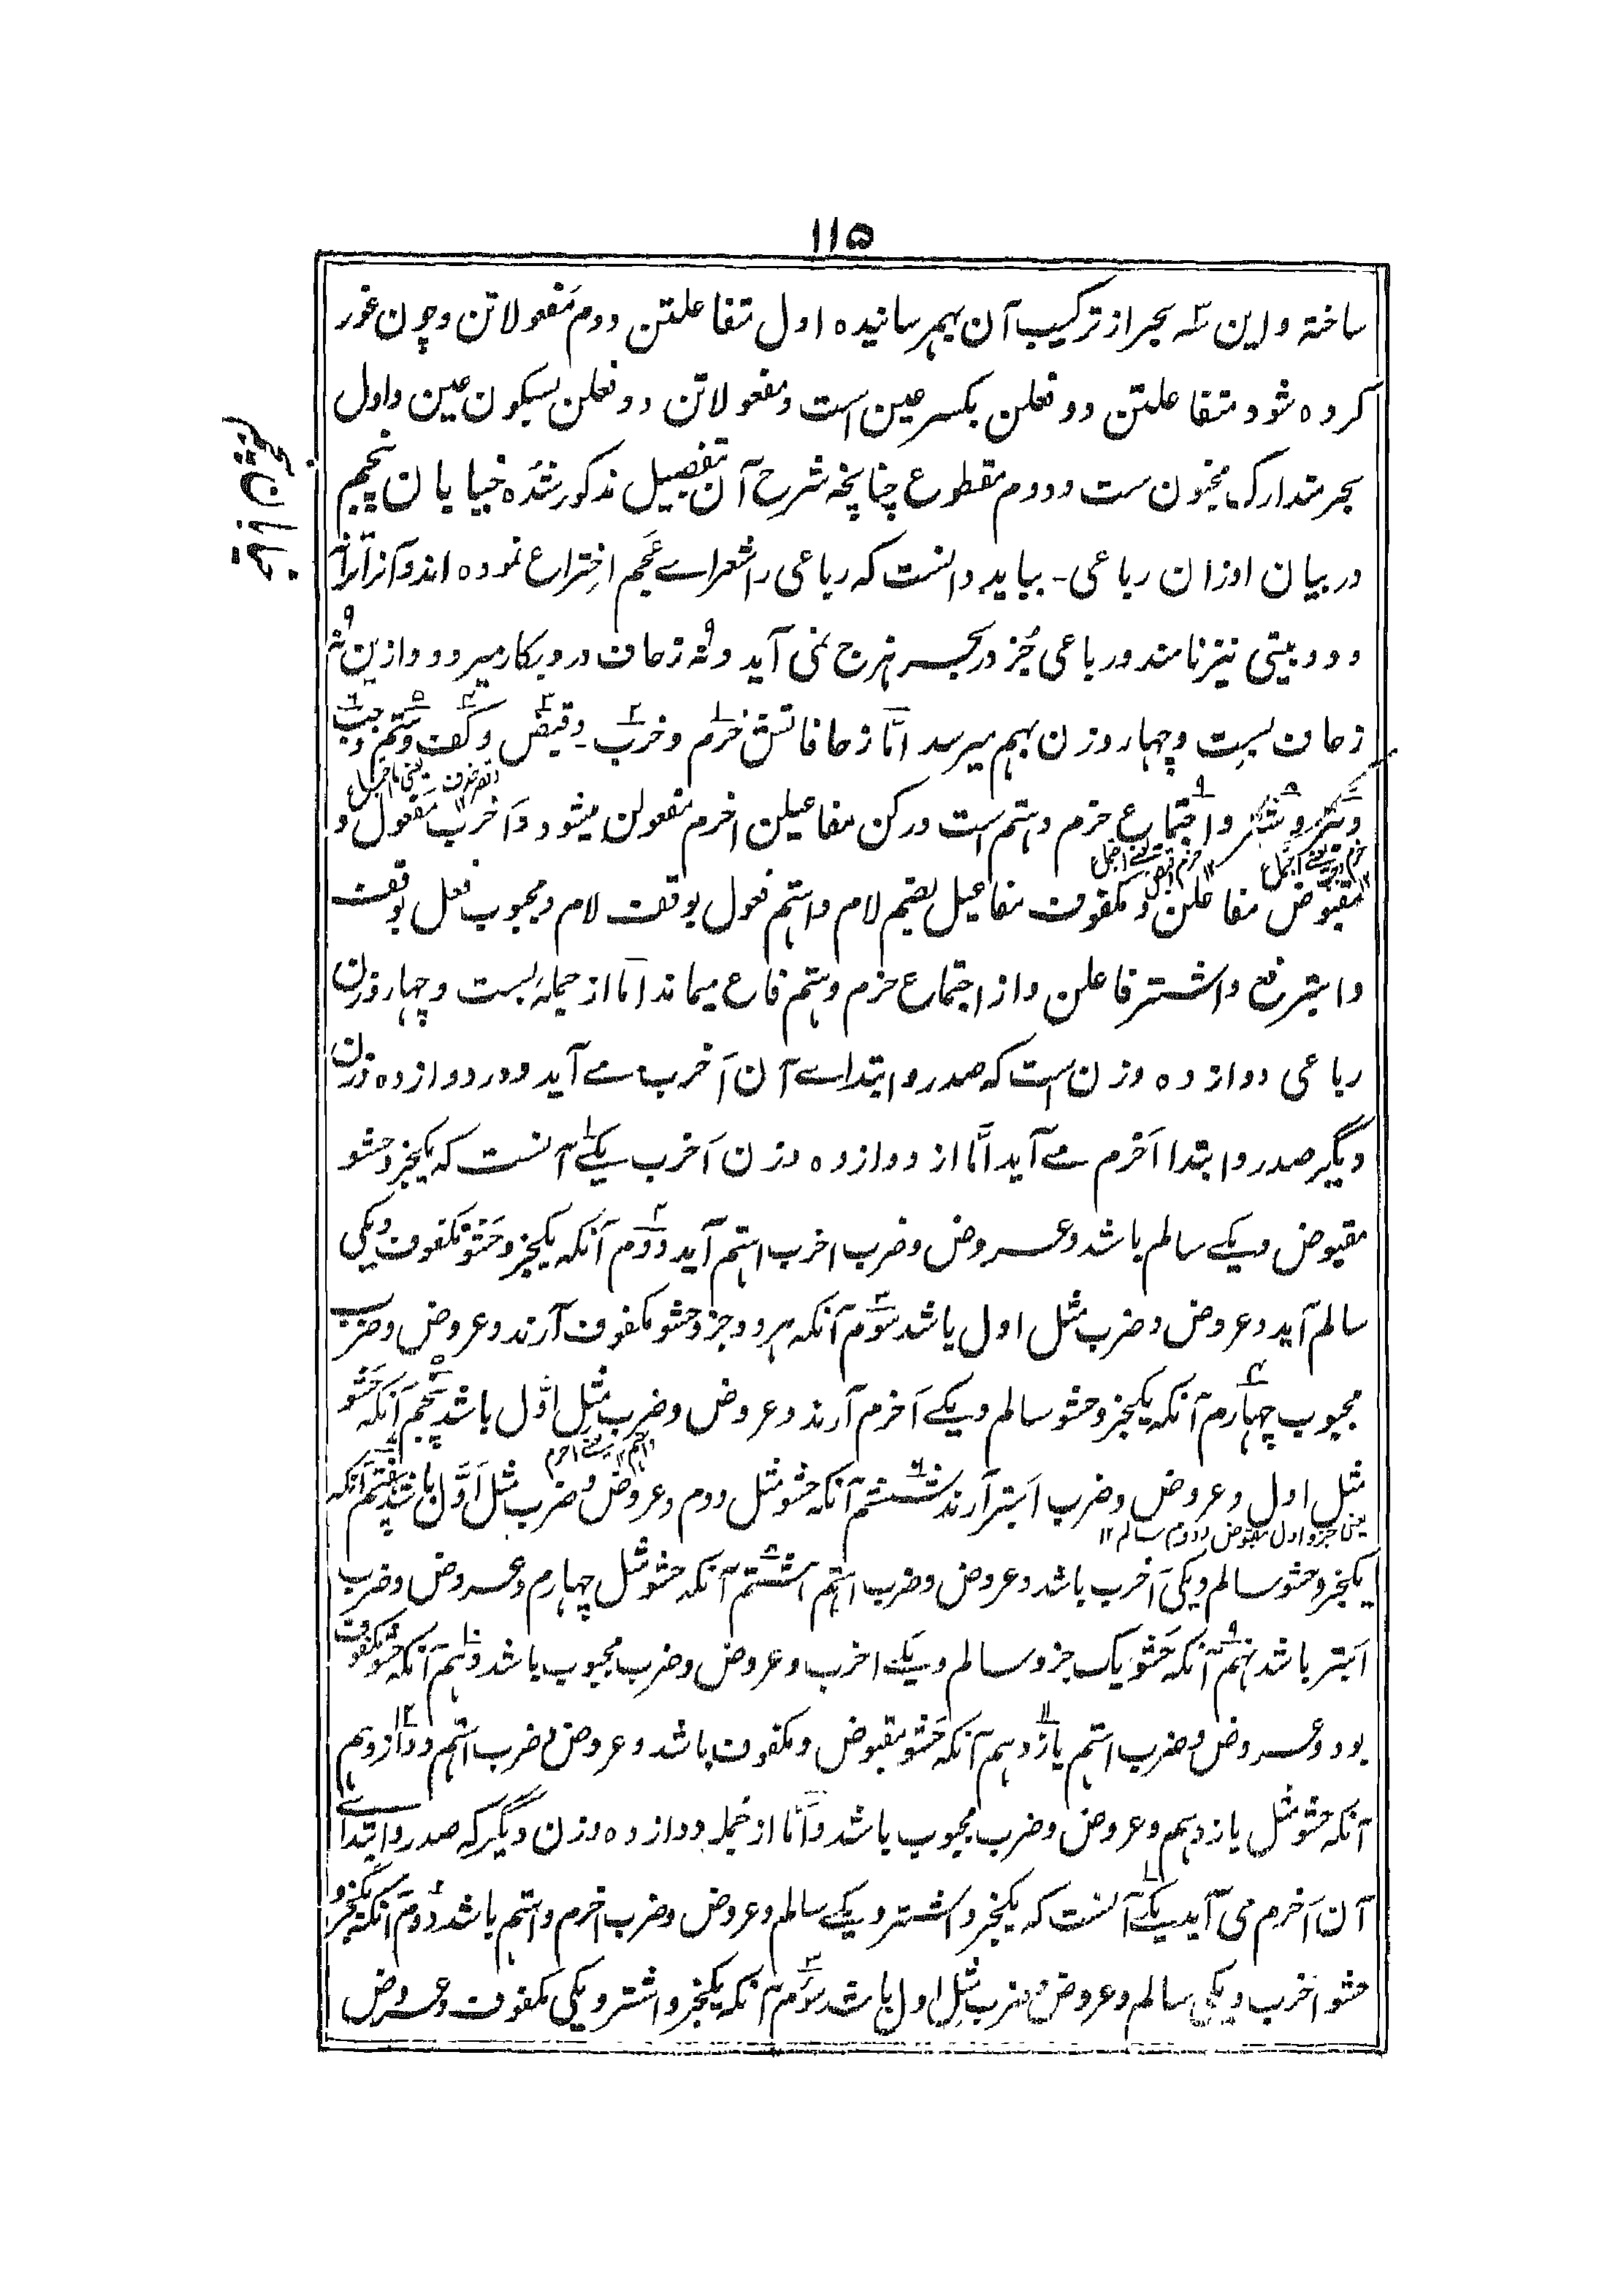 ۱۱۵
ساختہ و این سہ بحر از ترکیب آن بہم رسانیدہ اول متفاعلتن دوم مفعولاتن و چون غور
کردہ شود متفاعلتن دو فعلن بکسر عین است و مفعولاتن دو فعلن بسکون عین و اول
بحر متدارک مخبون ست و دوم مقطوع چنانچہ شرح آن بتفصیل مذکور شدہ خیابان پنجم
در بیان اوزان رباعی - بباید دانست کہ رباعی را شعراے عجم اختراع نمودہ اند و آنرا ترانہ
و دو بیتی نیز نامند و رباعی جز در بحر ہزج نمی آید و نُہ زحاف درو بکار میرود و ازین نُہ
زحاف بست و چہار وزن بہم میرسد امّا زحافاتش خرم و خرب و قبض و کف و ہتم و جب
و بتر و شتر و اجتماع خرم و ہتم است و رکن مفاعیلن اخرم مفعولن میشود و اخرب مفعول و
مقبوض مفاعلن و مکفوف مفاعیل بضم لام و اہتم فعول بوقف لام و مجبوب فعل بوقف
و ابتر فع و اشتر فاعلن و از اجتماع خرم و ہتم فاع میماند امّا از جملہ بست و چہار وزن
رباعی دوازدہ وزن است کہ صدر و ابتداے آن اَخرب مے آید و در دوازدہ وزن
دیگر صدر و ابتدا اَخرم مے آید امّا از دوازدہ وزن اَخرب یکے آنست کہ یکجزو حشو
مقبوض و یکے سالم باشد و عروض و ضرب اخرب اہتم آید دوم آنکہ یکجزو حشو مکفوف و یکی
سالم آید و عروض و ضرب مثل اول باشد سوم آنکہ ہر دو جزو حشو مکفوف آرند و عروض و ضرب
مجبوب چہارم آنکہ یکجزو حشو سالم و یکے اَخرم آرند و عروض و ضرب مثل اوّل باشد پنجم آنکہ حشو
مثل اول و عروض و ضرب ابتر آرند ششم آنکہ حشو مثل دوم و عروض و ضرب مثل اَوّل باشد ہفتم آنکہ
یعنی جزو اول مقبوض و دوم سالم ۱۲
یکجزو حشو سالم و یکی اَخرب باشد و عروض و ضرب اہتم ہشتم آنکہ حشو مثل چہارم و عروض و ضرب
اَبتر باشد نہم آنکہ حشو یک جزو سالم و یکے اخرب و عروض و ضرب مجبوب باشد دہم آنکہ حشو مکفوف
بود و عروض و ضرب اہتم یازدہم آنکہ حشو مقبوض و مکفوف باشد و عروض و ضرب اہتم دوازدہم
آنکہ حشو مثل یازدہم و عروض و ضرب مجبوب باشد و امّا از جملہ دوازدہ وزن دیگر کہ صدر و ابتداے
آن اَخرم می آید یکے آنست کہ یکجزو اشتر و یکے سالم و عروض و ضرب اخرم و اہتم باشد دوم آنکہ یکجزو
حشو اخرب و یکی سالم و عروض و ضرب مثل اول باشد سوم آنکہ یکجزو اشتر و یکی مکفوف و عروض